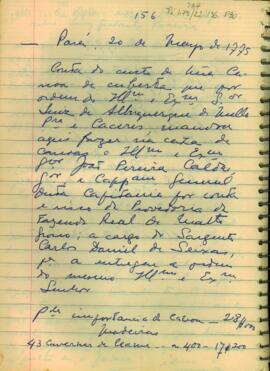 156
Pará, 20 de Março de 1775
Conta do custo de uma Ca
noa de cuberta que por
ordem do Illmo e Exmo Snr
Luiz de Albuquerque de Mello
Pra e Caceres mandou
aqui fazer na caza de
canoas o Illmo e Exmo
Snr João Pereira Caldas
Gor e Cappam General
desta Capitania por conta
e risco da Provedoria da
Fazenda Real de Matto
Grosso; a cargo do Sargento
Carlos Daniel de Seixas,
pa a entregar a ordem
do mesmo Illmo e Exmo
Senhor
importancia de
Madeiras
43 Cavernas de a 400 - 17$200